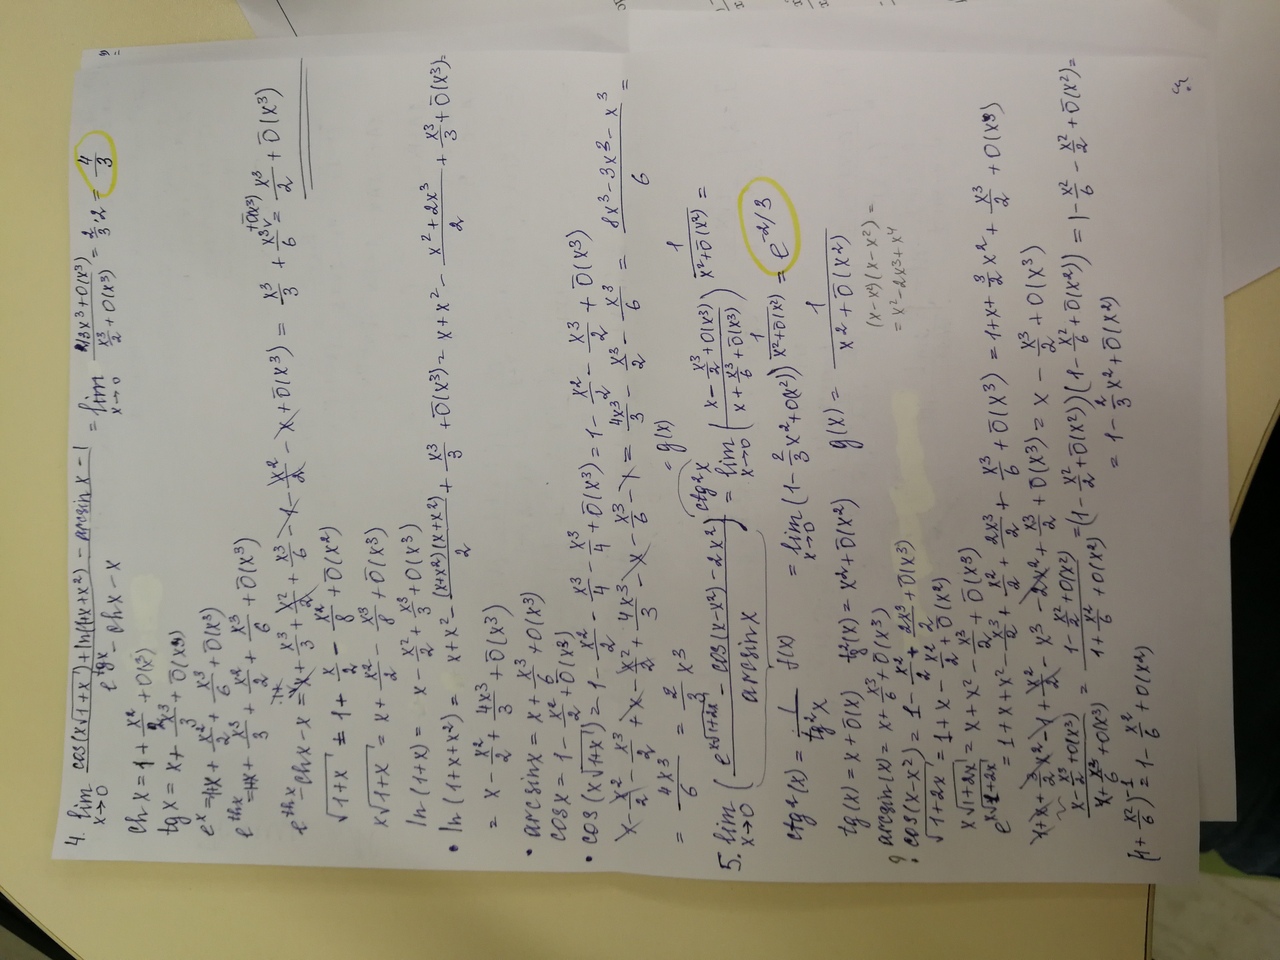 4. lim x→0 (cos(x√(1+x)) + ln(1+x+x²) - arcsin x - 1) / (e^(tg x) - ch x - x) = lim x→0 (2/3x³ + o(x³)) / (x³/2 + o(x³)) = 2/3·2 = 4/3
ch x = 1 + x²/2 + o(x³)
tg x = x + x³/3 + o(x³)
eˣ = 1+x + x²/2 + x³/6 + o(x³)
e^(th x) = 1+x + x³/3 + x²/2 + x³/6 + o(x³)
e^(th x) - ch x - x = 1 + x + x³/3 + x²/2 + x³/6 - 1 - x²/2 - x + o(x³) = x³/3 + x³/6 + o(x³) = x³/2 + o(x³)
√(1+x) = 1 + x/2 - x²/8 + o(x²)
x√(1+x) = x + x²/2 - x³/8 + o(x³)
ln(1+x) = x - x²/2 + x³/3 + o(x³)
• ln(1+x+x²) = x + x² - (x+x²)(x+x²)/2 + x³/3 + o(x³) = x + x² - (x²+2x³)/2 + x³/3 + o(x³) =
= x - x²/2 + 4x³/3 + o(x³)
• arcsin x = x + x³/6 + o(x³)
cos x = 1 - x²/2 + o(x³)
• cos(x√(1+x)) = 1 - x²/2 - x³/4 - x³/4 + o(x³) = 1 - x²/2 - x³/2 + o(x³)
- x³/2 + x - x²/2 + 4x³/3 - x - x³/6 - 1 = 4x³/3 - x³/2 - x³/6 = (8x³ - 3x³ - x³)/6 =
= 4x³/6 = 2/3 x³
5. lim x→0 ((e^(x√(1+2x)) - cos(x-x²) - 2x²) / arcsin x)^(ctg²x) = lim x→0 ((x - x³/2 + o(x³)) / (x + x³/6 + o(x³)))^(1/(x²+o(x²))) =
f(x) = g(x)
ctg²(x) = 1/tg²x = lim x→0 (1 - 2/3x² + o(x²))^(1/(x²+o(x²))) = e^(-2/3)
tg(x) = x + o(x) tg²(x) = x² + o(x²) g(x) = 1/(x² + o(x²))
arcsin(x) = x + x³/6 + o(x³) (x-x²)(x-x²) =
= x² - 2x³ + x⁴
? cos(x-x²) = 1 - x²/2 + 2x³/2 + o(x³)
√(1+2x) = 1 + x - x²/2 + o(x²)
x√(1+2x) = x + x² - x³/2 + o(x³)
e^(x√(1+2x)) = 1 + x + x² - x³/2 + x²/2 + 2x³/2 + x³/6 + o(x³) = 1 + x + 3/2 x² + x³/2 + o(x³)
1 + x + 3/2 x² - 1 + x²/2 - x³ - 2x² + x³/2 + o(x³) = x - x³/2 + o(x³)
(x - x³/2 + o(x³)) / (x + x³/6 + o(x³)) = (1 - x²/2 + o(x²)) / (1 + x²/6 + o(x²)) = (1 - x²/2 + o(x²))(1 - x²/6 + o(x²)) = 1 - x²/6 - x²/2 + o(x²) =
= 1 - 2/3 x² + o(x²)
(1 + x²/6)⁻¹ = 1 - x²/6 + o(x²)